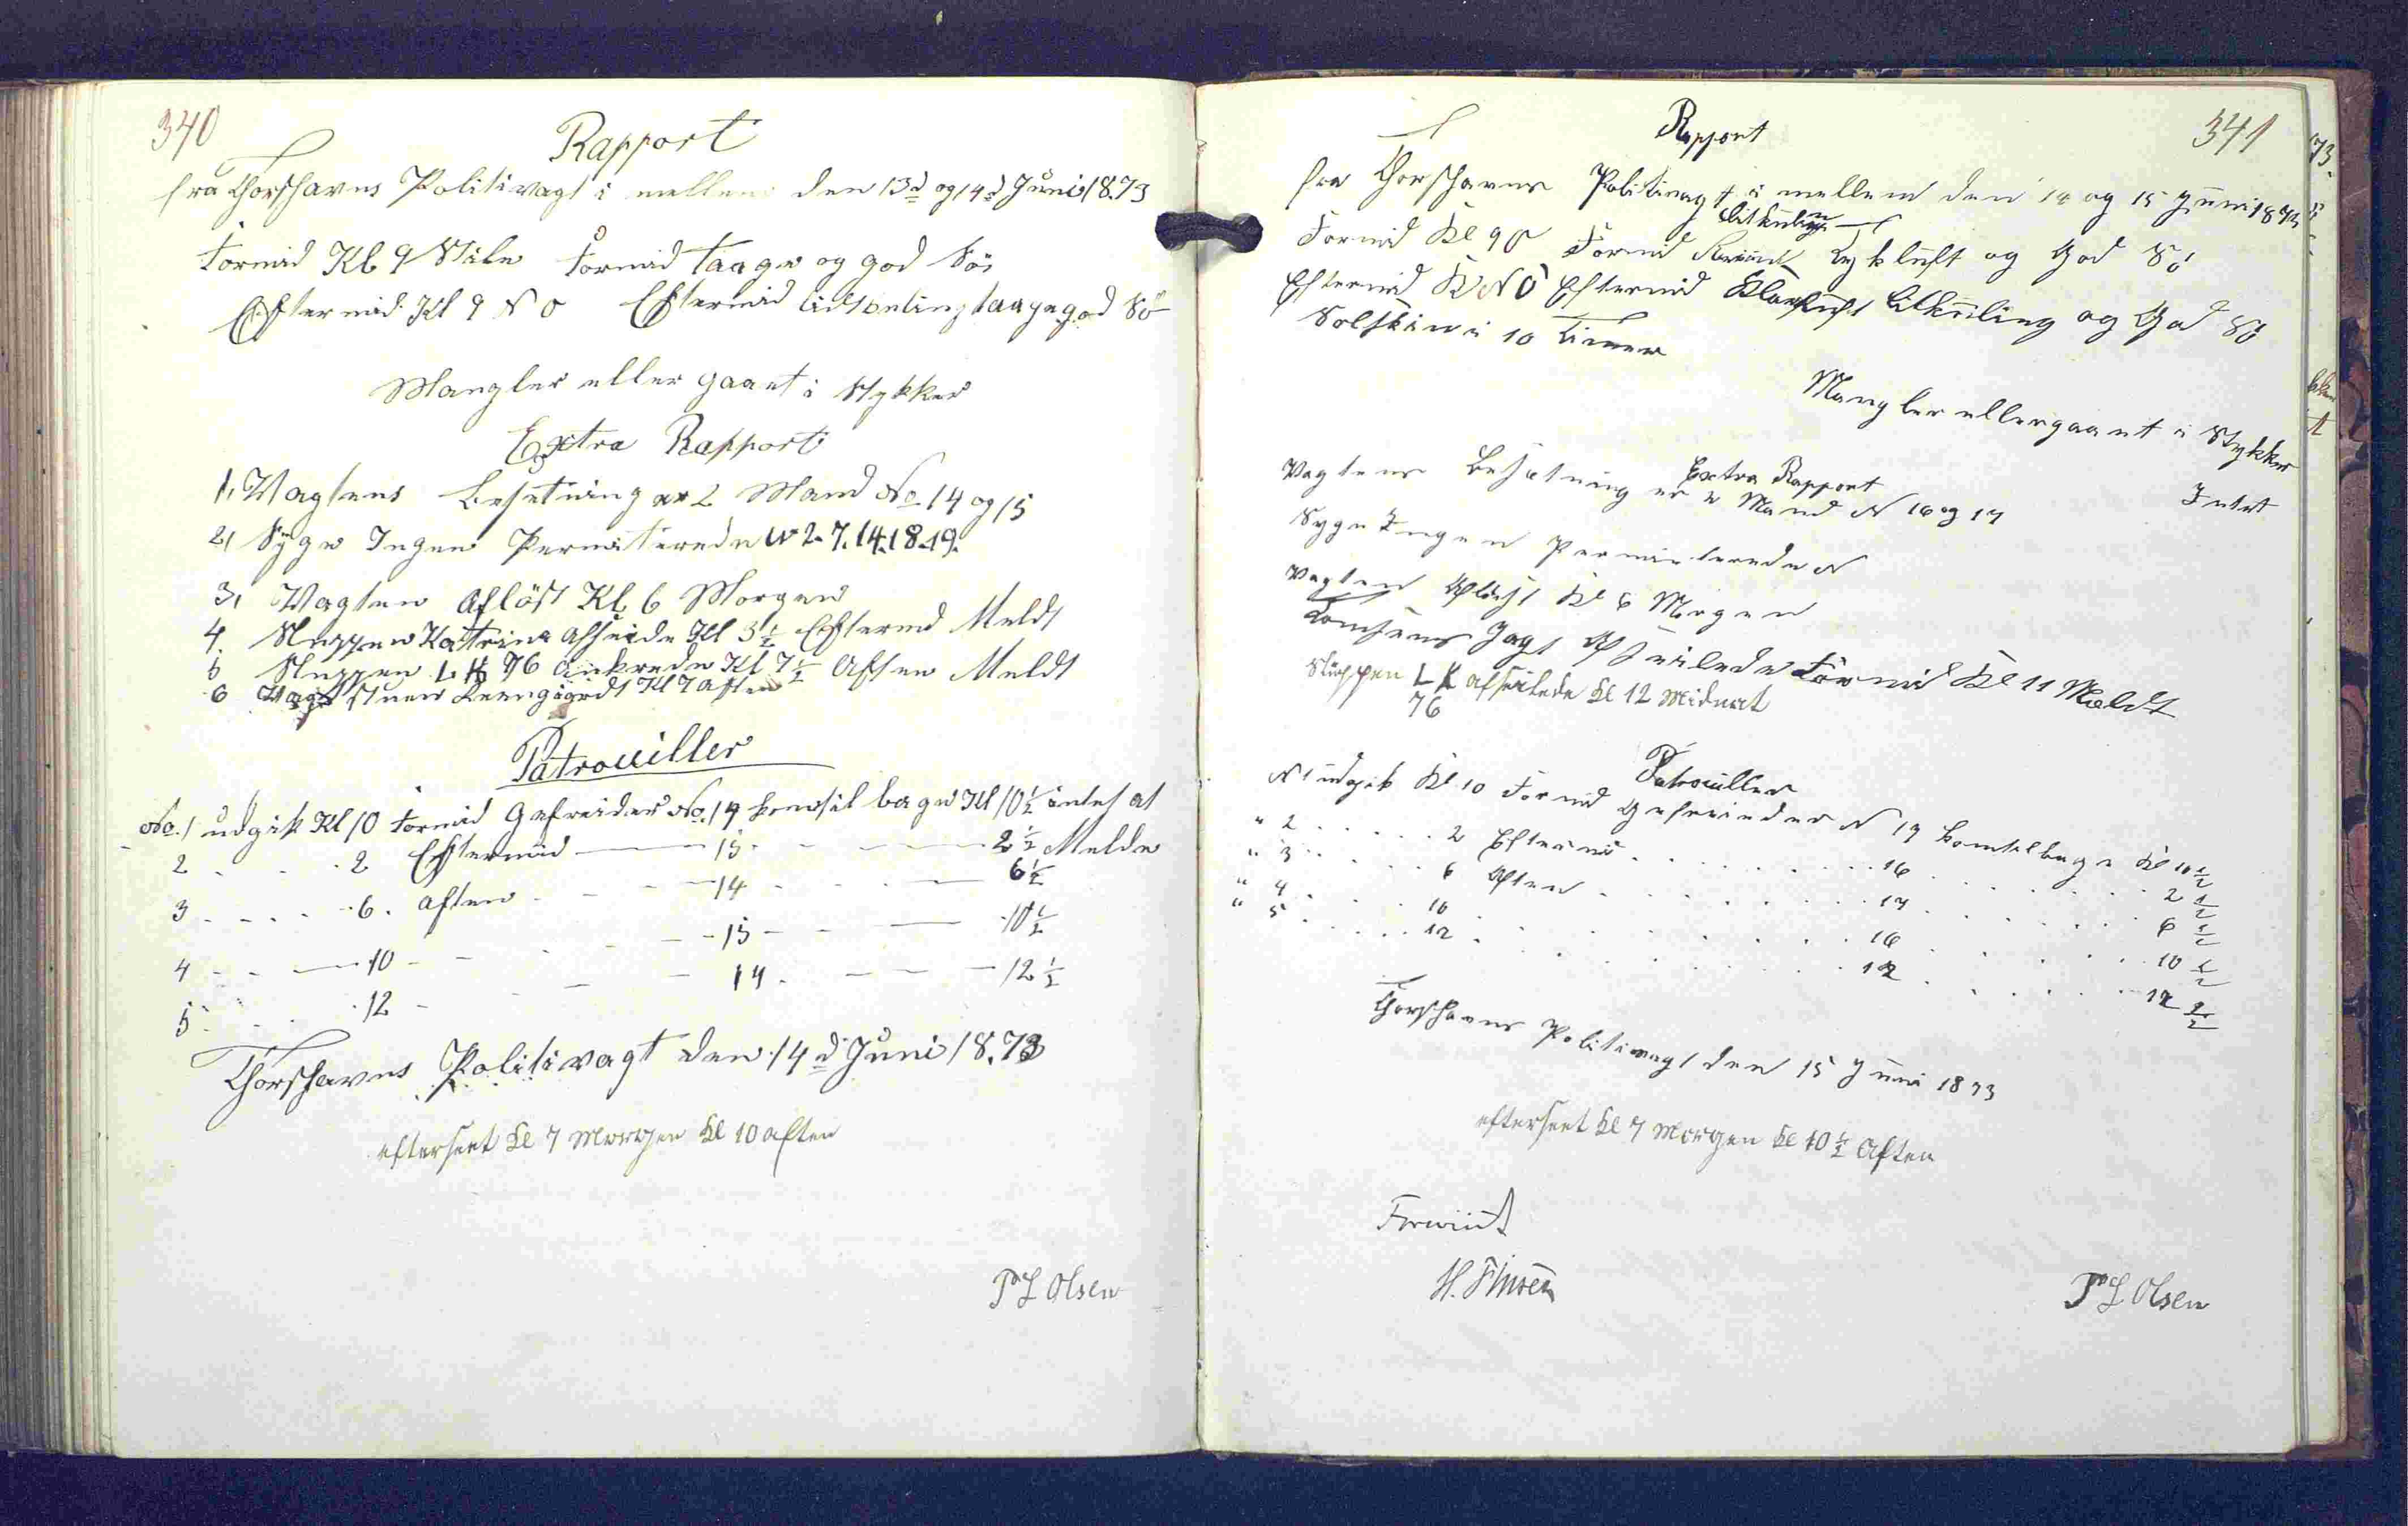 340
Rapport
fra Thorshavns Politivagt i mellem den 13d og 14d Juni 1873
Formid Kl 9 Stile Formid Taage og god Sö
Eftermid Kl 9 N O Eftermid lidkuling taage god Sö
Mangler eller gaaet i Stykker
Extra Rapport
1, Vagtens Besetning er 2 Mand No 14 og 15
2, Syge Ingen Permiterede N 2. 7. 14. 18. 19.
3, Vagten Aflöst Kl 6 Morgen
4. Sluppen Katrine afseilde Kl 3 1/2 Eftermd Meldt
5 Sluppen L K 76 ankrede Kl 7 1/2 Aften Meldt
6 Vagtstuen Reengiordt Kl 7 aften
Patrouiller
No. 1 udgik Kl 10 Formid Gefreider No. 14 kom tilbage Kl 10 1/2 intet at
2 - - 2 Eftermid - 15 - - 2 1/2 Melde
3 - - 6. aften - - 14 - - 6 1/2
4 - - 10 - - 15 - - 10 1/2
5 - - 12 - - 14 - - 12 1/2
Thorshavns Politivagt den 14d Juni 1873
efterseet Kl 7 Morgen Kl 10 aften
P L Olsen
341
Rapport
fra Thorshavns Politivagt i mellem den 14 og 15 Juni 1873
Litkuling
Formid Kl 9 Formid Tykluft og God Sö
Eftermid Kl N O Eftermid Klarluft Litkuling og God Sö
Solskin i 10 Timer
Mangler eller gaaet i Stykker
Intet
Extra Rapport
Vagtens Besætning er 2 Mand N 16 og 17
Syge Ingen Permiterede N
Vagten Aflöst Kl 6 Morgen
Jagt Afseilede Formid Kl 11 Meldt
Sluppen L K afseilede Kl 12 Midnat
76
Patrouiller
N 1 udgik Kl 10 Formid Gefreider N 17 kom tilbage Kl 10 1/2
" 2 . . . . 2 Eftermid . . . . 16 . . . . 2 1/2
" 3 . . . . 6 Aften . . . . 17 . . . . 6 1/2
" 4 . . . . 10 . . . . 16 . . . . 10 1/2
" 5 . . . . 12 . . . . 17 . . . . 12 1/2
Thorshavns Politivagt den 15 Juni 1873
efterseet Kl 7 Morgen Kl 10 1/2 Aften
Foreviist
H. Finsen
P L Olsen